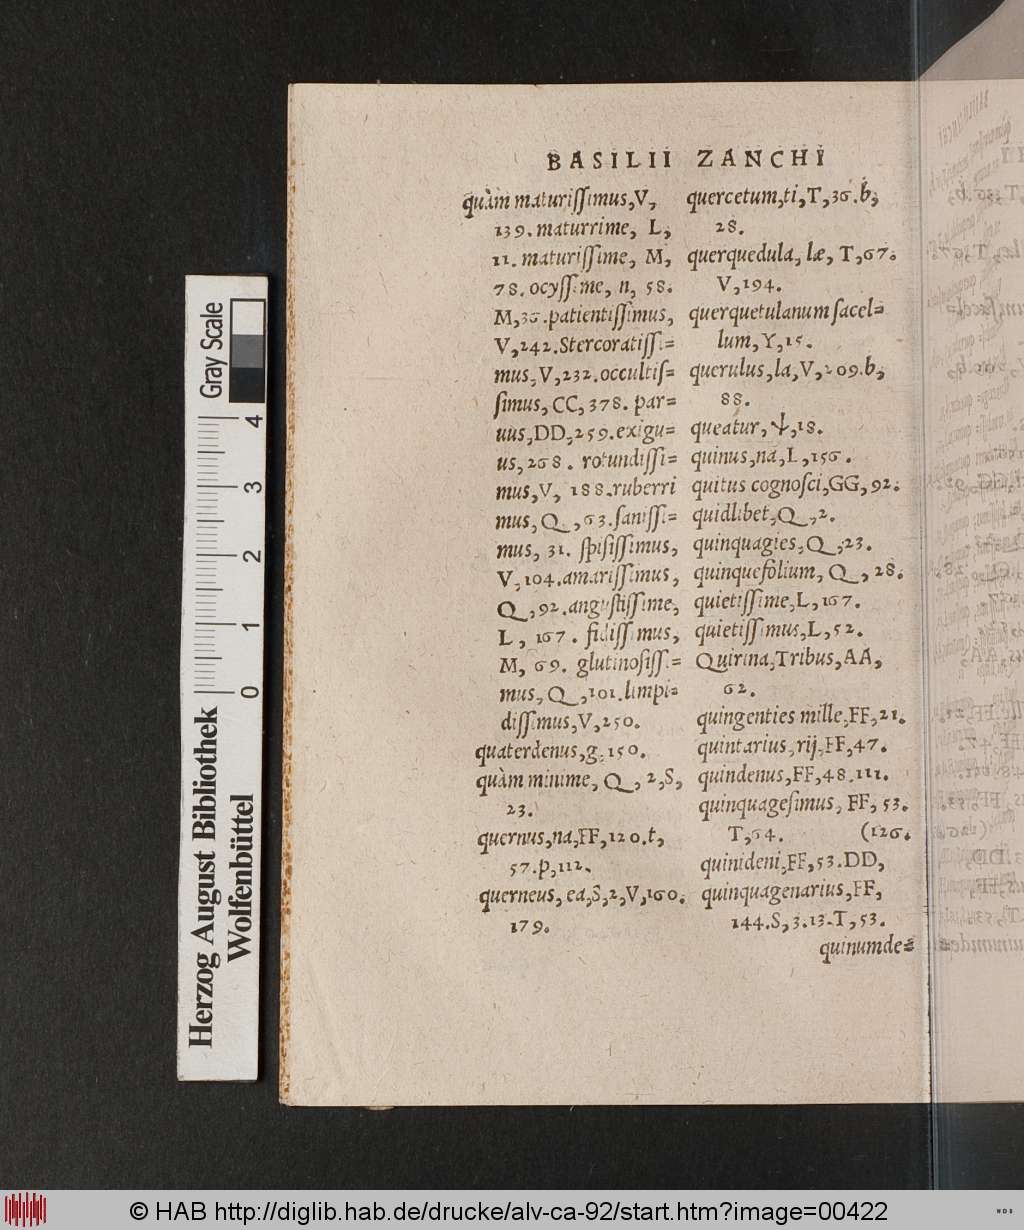 BASILII ZANCHI
quàm maturissimus, V,
139. maturrime, L,
11. maturissime, M,
78. ocyssime, n, 58.
M, 36. patientissimus,
V, 242. Stercoratissi=
mus, V, 232. occultis=
simus, CC, 378. par=
uus, DD, 259. exigu=
us, 268. rotundissi=
mus, V, 188. ruberri
mus, Q, 63. sanissi=
mus, 31. spisissimus,
V, 104. amarissimus,
Q, 92. angustissime,
L, 167. fidissimus,
M, 69. glutinosissi=
mus, Q, 101. limpi=
dissimus, V, 250.
quaterdenus, g, 150.
quàm minime, Q, 2, S,
23.
quernus, na, FF, 120. t,
57. p, 112.
querneus, ea, S, 2, V, 160.
179.
quercetum, ti, T, 36. b,
28.
querquedula, læ, T, 67.
V, 194.
querquetulanum sacel=
lum, Y, 15.
querulus, la, V, 209. b,
88.
queatur, ψ, 18.
quinus, na, L, 156.
quitus cognosci, GG, 92.
quidlibet, Q, 2.
quinquagies, Q, 23.
quinquefolium, Q, 28.
quietissime, L, 167.
quietissimus, L, 52.
Quirina, Tribus, AA,
62.
quingenties mille, FF, 21.
quintarius, rij, FF, 47.
quindenus, FF, 48. 111.
quinquagesimus, FF, 53.
T, 64. (126.
quinideni, FF, 53. DD,
quinquagenarius, FF,
144. S, 3. 13. T, 53.
quinumde=
Gray Scale
0 1 2 3 4
Herzog August Bibliothek
Wolfenbüttel
© HAB http://diglib.hab.de/drucke/alv-ca-92/start.htm?image=00422